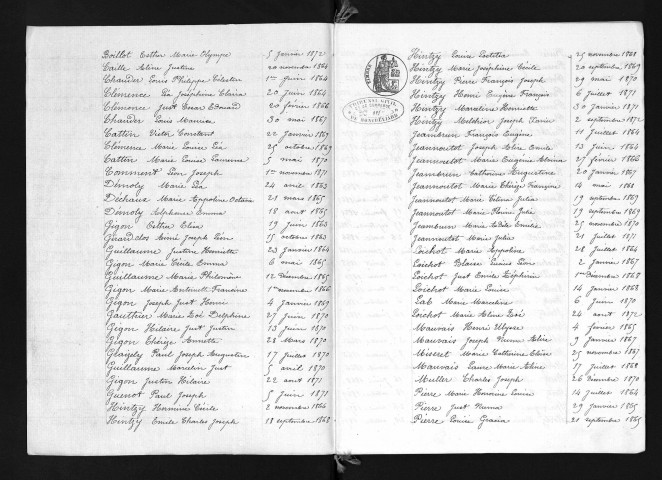 Boillot Esther Marie Olympe 5 Janvier 1872
Caille Aline Justine 20 novembre 1864
Chauder Louis Philippe Célestin 1er Juin 1864
Clemence Léa Joséphine Elaira 20 Juin 1864
Clémence Just Oscar Edouard 20 février 1866
Chauder Louis Maurice 30 mai 1867
Cattin Victor Constant 22 Janvier 1869
Clémence Marie Louise Léa 25 octobre 1869
Cattin Marie Louise 5 mai 1870
Comment Léon Joseph 1er novembre 1871
Démoly Marie Léa 24 avril 1863
Déchaux Marie Appoline Octavie 21 mars 1865
Démoly Alphonse Emma 18 août 1865
Gigon Esther Elisa 19 Juin 1863
Girardclos Aimé Joseph Léon 15 octobre 1863
Guillaume Justine Henriette 23 Janvier 1864
Gigon Marie Cécile Emma 6 mai 1865
Guillaume Marie Philomène 12 Décembre 1865
Gigon Marie Antoinette Francine 1er novembre 1866
Gigon Joseph Just Henri 4 Janvier 1869
Gauthier Marie Zoé Delphine 27 Juin 1870
Gigon Hilaire Just Justin 13 Juin 1870
Gigon Thérèze Annette 28 Mars 1870
Glajely Paul Joseph Augustin 17 Juillet 1870
Guillaume Marcelin Just 5 avril 1870
Gigon Justin Hilaire 22 août 1871
Guenot Paul Joseph 5 Juin 1871
Hintzy Hermine Cécile 2 novembre 1864
Hintzy Emile Charles Joseph 18 septembre 1868
Hintzy Louise Laetitia 25 novembre 1868
Hintzy Marie Joséphine Cécile 20 septembre 1869
Hintzy Pierre François Joseph 29 mai 1870
Hintzy Henri Eugène François 6 Juillet 1871
Hintzy Marceline Henriette 30 Janvier 1871
Hintzy Melchior Joseph Xavier 2 septembre 1872
Jeambrun François Eugène 11 Juillet 1864
Jeannoutot Joseph Aline Emile 13 Juin 1864
Jeannoutot Marie Eugénie Elmina 27 février 1866
Jeambrun Catherine Augustine 20 Janvier 1867
Jeannoutot Marie Thérèze Françoise 14 mai 1868
Jeannoutot Marie Céline Julia 19 septembre 1869
Jeannoutot Marie Florine Julie 19 septembre 1869
Jeambrun Marie Lydie Emilie 25 novembre 1870
Jeannoutot Marie Julia 21 Juillet 1871
Loichot Marie Appoline 28 Juillet 1864
Loichot Blaise Lucas Léon 2 Janvier 1867
Loichot Just Emile Zéphirin 1er Décembre 1867
Loichot Marie Louise 14 Janvier 1868
Lab Marie Marceline 6 Juin 1870
Loichot Marie Aline Zoé 24 août 1872
Mauvais Henri Ulysse 4 février 1865
Mauvais Joseph Numa Alire 9 Janvier 1867
Misseret Marie Catherine Elise 25 novembre 1867
Mauvais Laure Marie Aline 17 Juillet 1868
Muller Charles Joseph 26 Décembre 1870
Pierre Marie Hermine Louise 14 Juillet 1864
Pierre Just Numa 29 Janvier 1865
Pierre Louise Gracia 21 septembre 1865